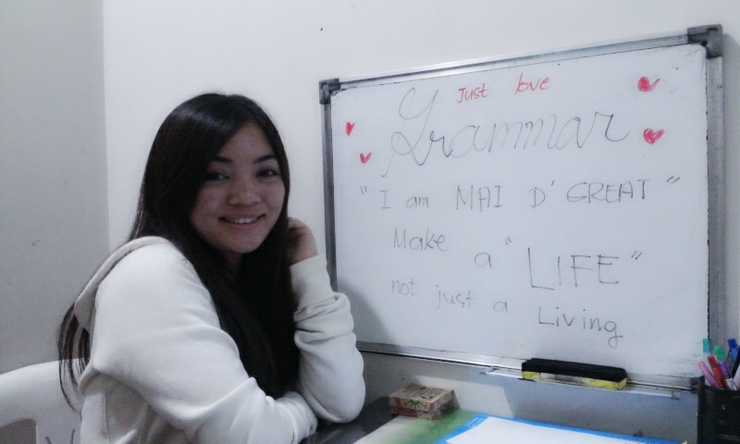 Just love
Grammar
"I am MAI D' GREAT"
Make a "LIFE"
not just a Living